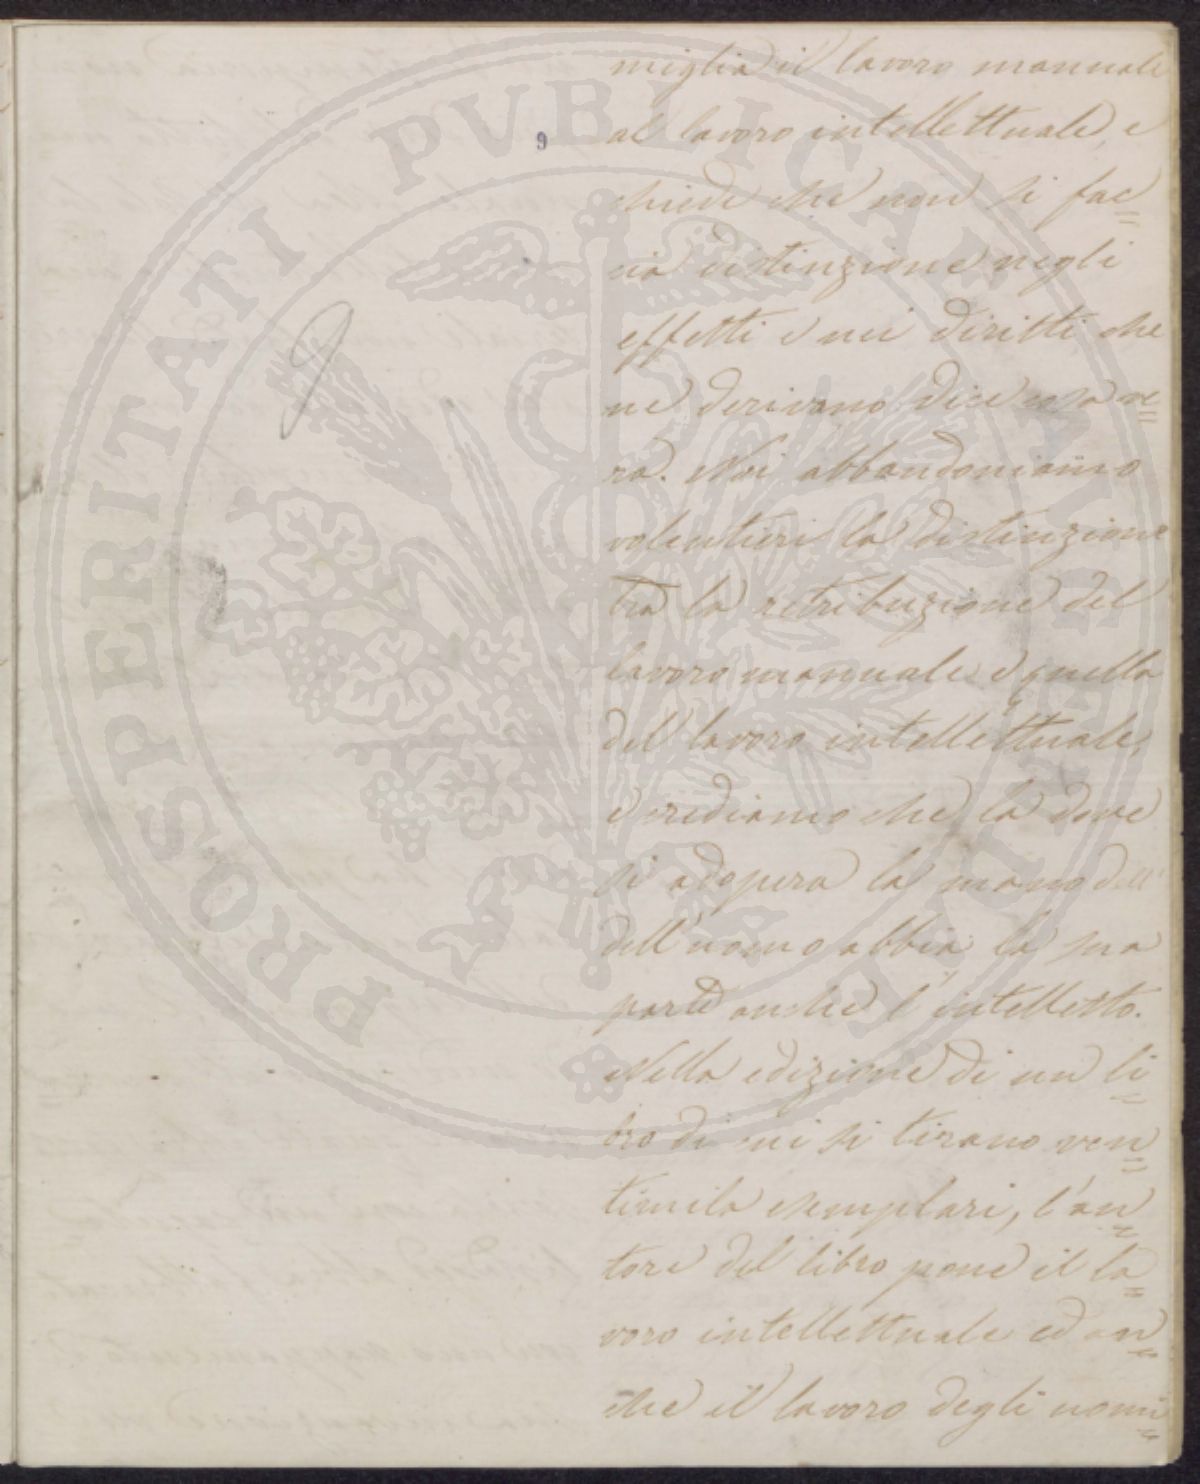 9
miglia il lavoro manuale
al lavoro intellettuale, e
chiede che non si fac=
cia distinzione negli
effetti e nei diritti che
ne derivano dice cosa ve=
ra. Noi abbandoniamo
volentieri la distinzione
tra la retribuzione del
lavoro manuale e quella
dell' lavoro intellettuale,
e crediamo che là dove
si adopera la mano dell'
dell'uomo abbia la sua
parte anche l'intelletto.
Nella edizione di un li=
bro di cui si tirano ven=
timila esemplari, l'au=
tore del libro pone il la=
voro intellettuale ed an=
che il lavoro degli uomi=
PROSPERITATI PVBLICAE AVGENDAE